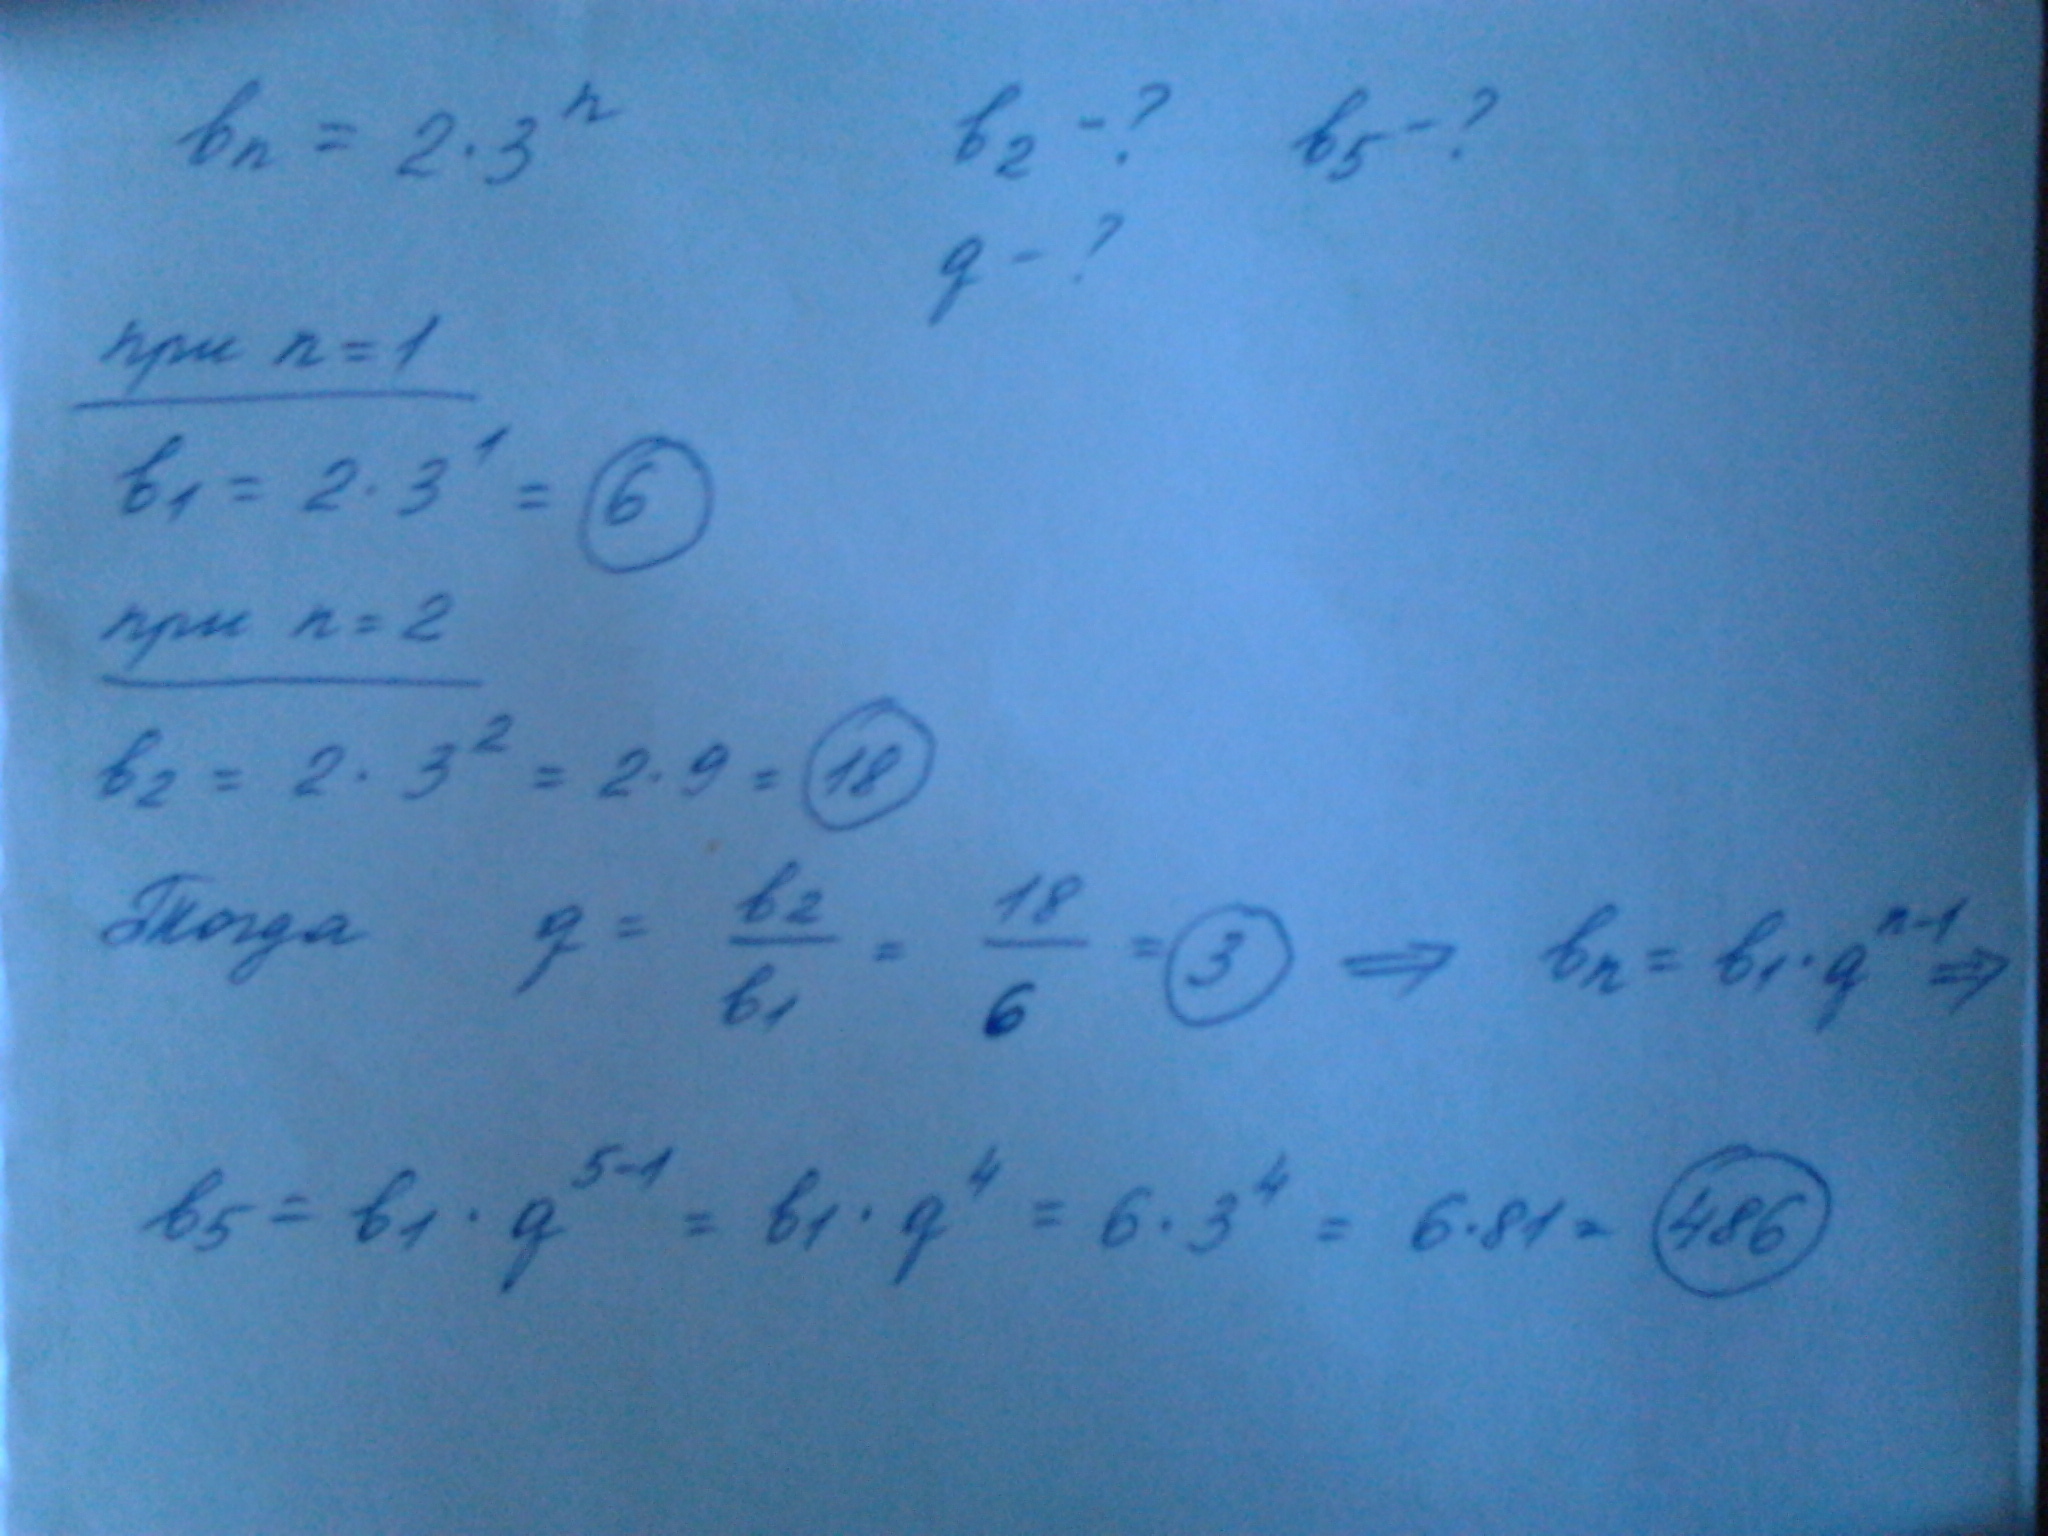 bₙ = 2·3ⁿ b₂ -? b₅ -?
q - ?
при n=1
b₁ = 2·3¹ = 6
при n=2
b₂ = 2·3² = 2·9 = 18
Тогда q = b₂/b₁ = 18/6 = 3 ⇒ bₙ = b₁·qⁿ⁻¹ ⇒
b₅ = b₁·q⁵⁻¹ = b₁·q⁴ = 6·3⁴ = 6·81 = 486